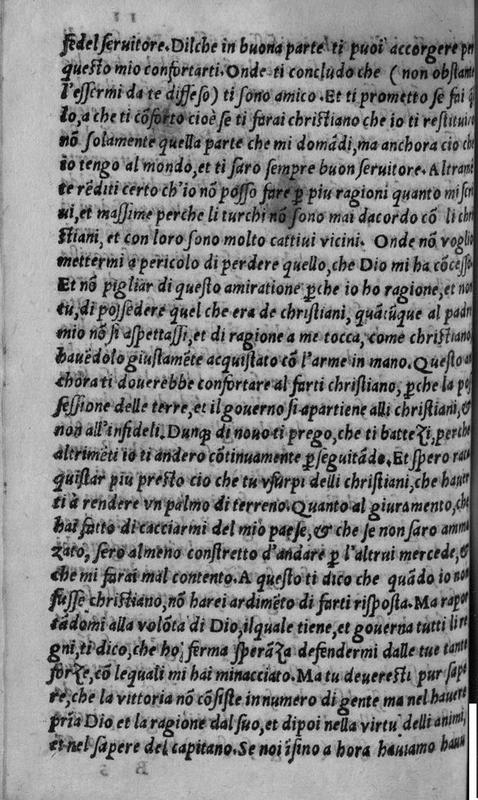 fe del seruitore. Dilche in buona parte ti puoi accorgere per
questo mio confortarti. Onde ti concludo che ( non obstante
l'essermi da te diffeso) ti sono amico. Et ti prometto se fai
lo, a che ti cõforto cioè se ti farai christiano che io ti restituirò
nõ solamente quella parte che mi domãdi, ma anchora cio
io tengo al mondo, et ti saro sempre buon seruitore. Altramē
te rēditi certo ch'io nõ posso fare ꝑ piu ragioni quanto mi scri
ui, et massime perche li turchi nõ sono mai dacordo cõ li chri
stiani, et con loro sono molto cattiui vicini. Onde nõ voglio
mettermi a pericolo di perdere quello, che Dio mi ha cõcesso.
Et nõ pigliar di questo amiratione ꝑche io ho ragione, et non
tu, di possedere quel che era de christiani, quãtũque al padre
mio nõ si aspettassi, et di ragione a me tocca, come christiano,
hauēdolo giustamēte acquistato cõ l'arme in mano. Questo an
chora ti douerebbe confortare al farti christiano, ꝑche la pos
sessione delle terre, et il gouerno si apartiene alli christiani, &
non all'infideli. Dunqꝫ di nouo ti prego, che ti battezi, perche
altrimēti io ti andero cõtinuamente ꝑseguitãdo. Et spero rac
quistar piu presto cio che tu vsurpi delli christiani, che hauer
ti à rendere vn palmo di terreno. Quanto al giuramento, che
hai fatto di cacciarmi del mio paese, & che se non saro amma
zato, sero almeno constretto d'andare ꝑ l'altrui mercede, &
che mi farai mal contento. A questo ti dico che quãdo io non
fusse christiano, nõ harei ardimēto di farti risposta. Ma rapor
tãdomi alla volõta di Dio, il quale tiene, et gouerna tutti li re
gni, ti dico, che ho ferma sperãza defendermi dalle tue tante
forze, cõ lequali mi hai minacciato. Ma tu deueresti pur sape
re, che la vittoria nõ cõsiste in numero di gente ma nel hauere
pria Dio et la ragione dal suo, et dipoi nella virtu delli animi,
et nel sapere del capitano. Se noi ĩsino a hora hauiamo hauu